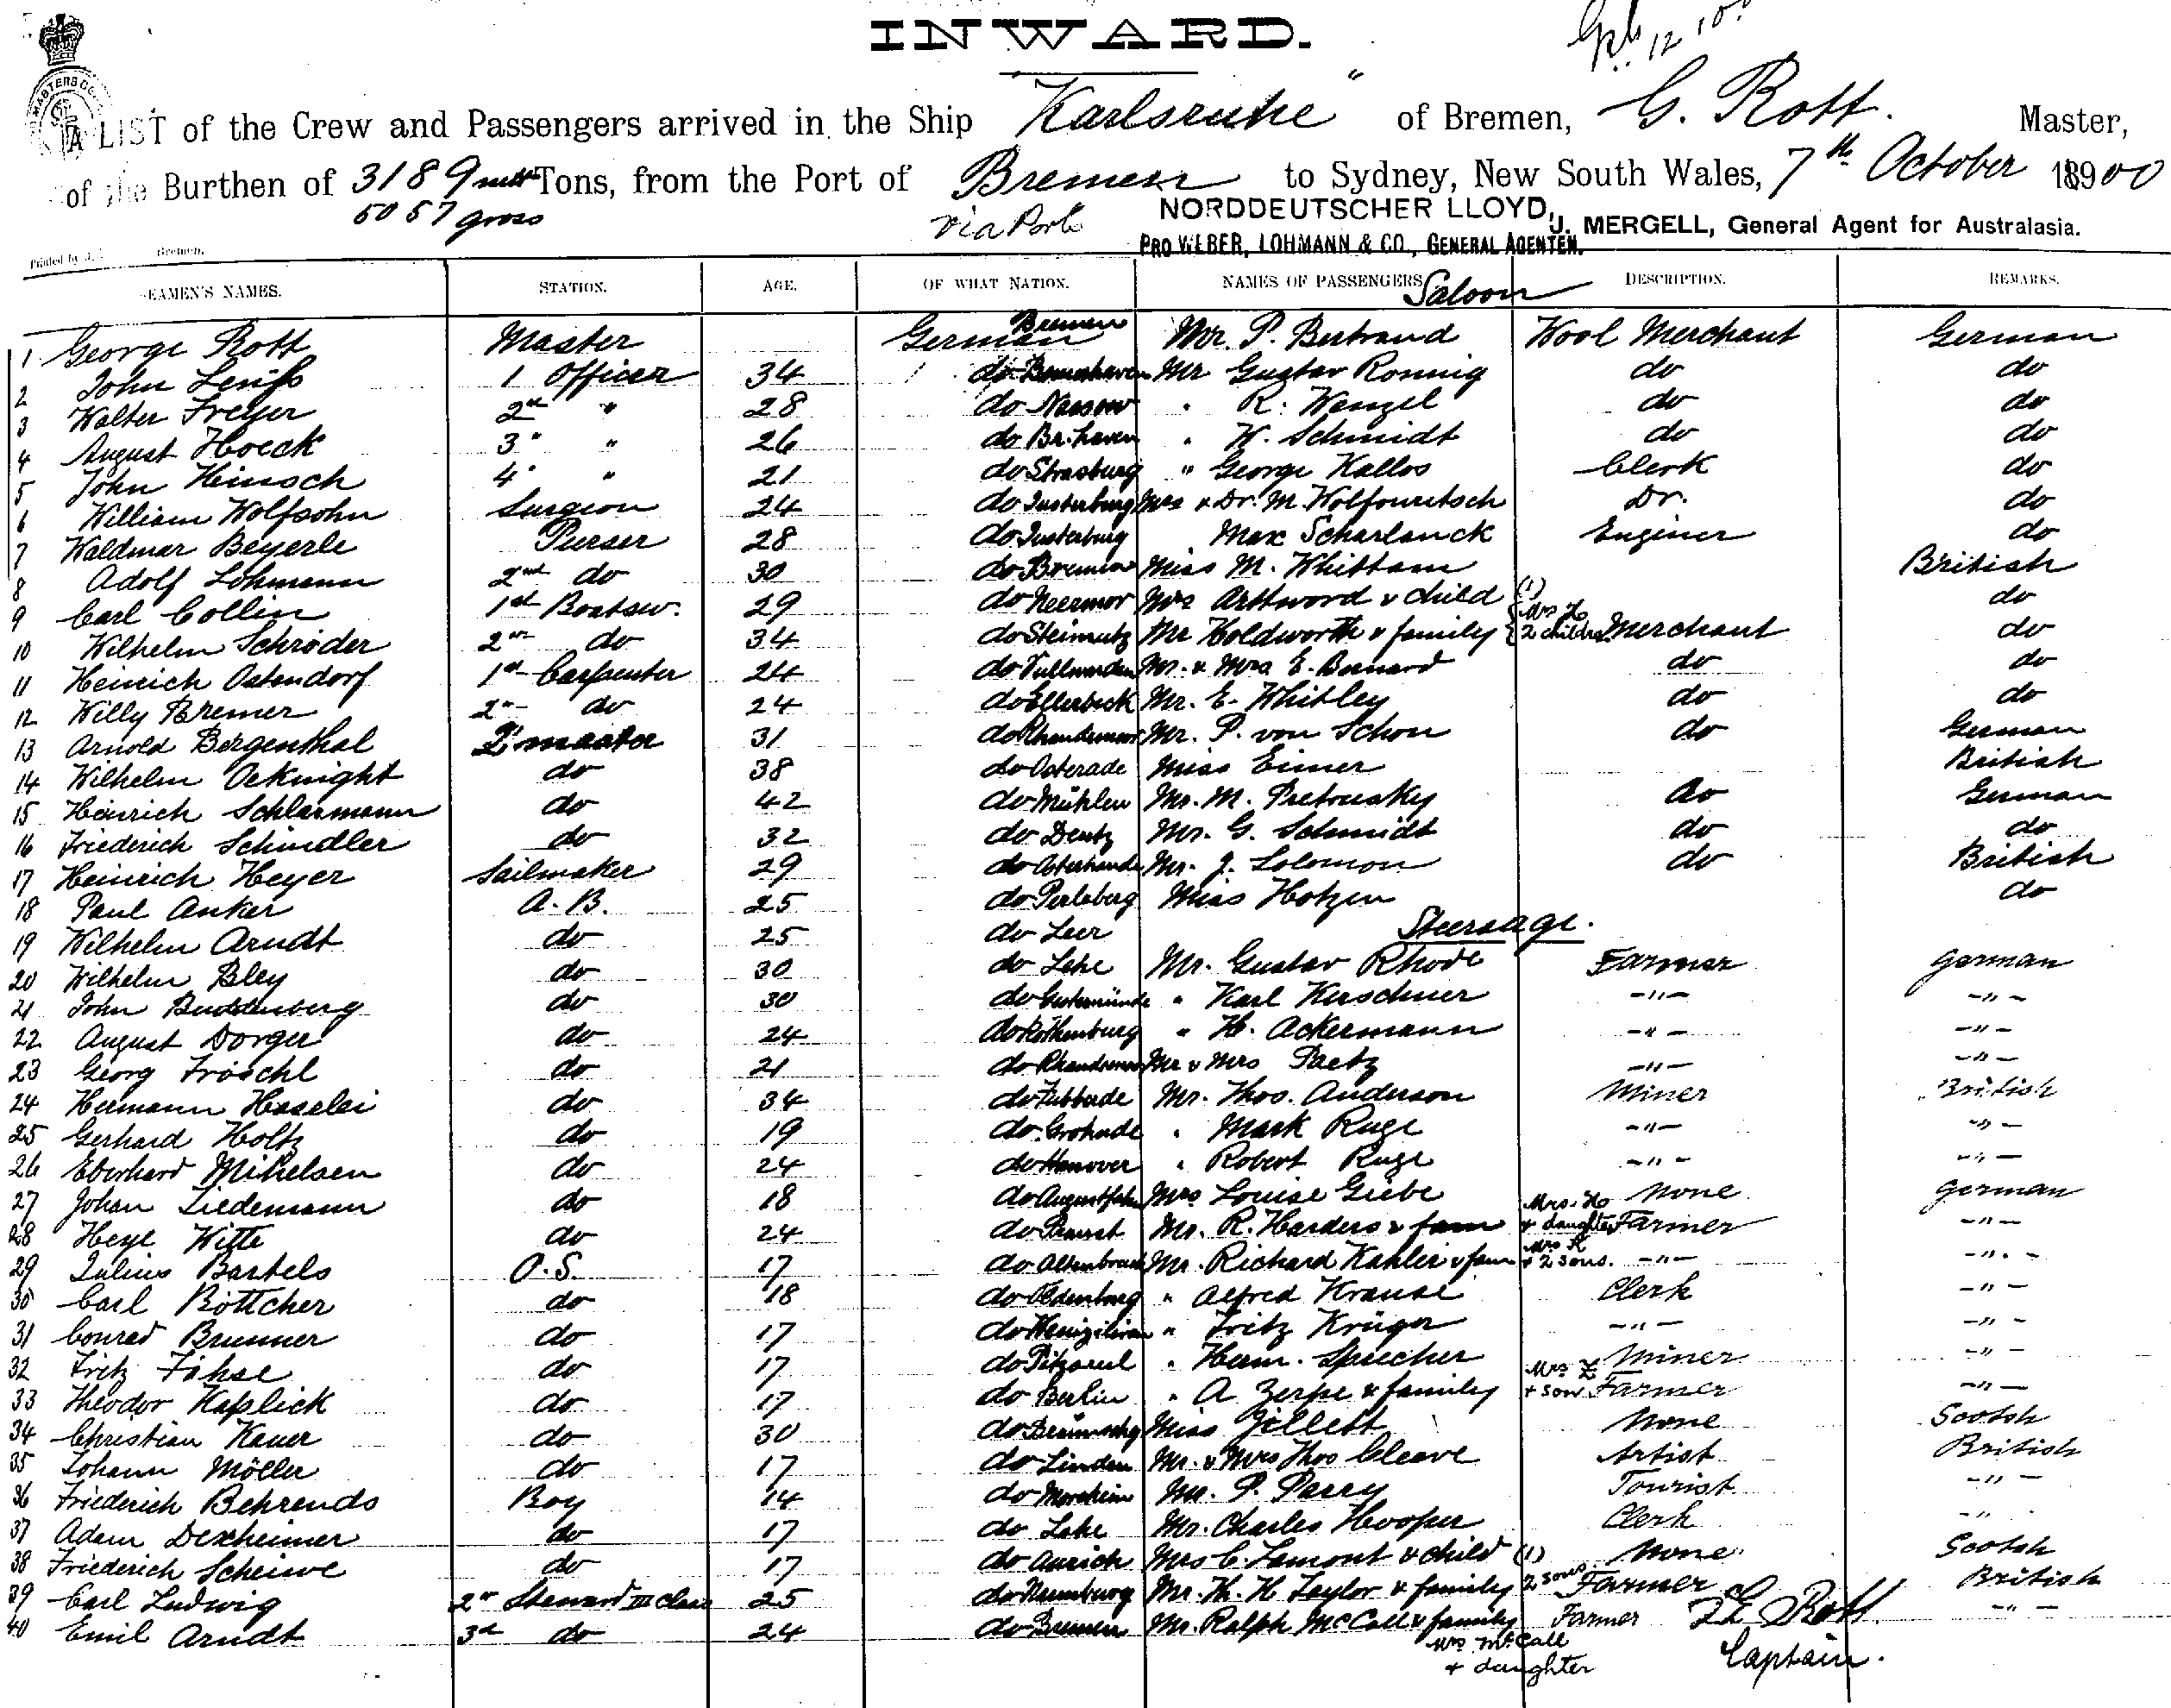 Gpb 12.10.
INWARD.
A LIST of the Crew and Passengers arrived in the Ship "Karlsruhe" of Bremen, G. Rott. Master,
of the Burthen of 3189 nett Tons, from the Port of Bremen to Sydney, New South Wales, 7th October 18900
5057 gross via Ports NORDDEUTSCHER LLOYD, J. MERGELL, General Agent for Australasia.
PRO WEBER, LOHMANN & CO., GENERAL AGENTEN.
Printed by J. Bremen.
SEAMEN'S NAMES. STATION. AGE. OF WHAT NATION. NAMES OF PASSENGERS Saloon DESCRIPTION. REMARKS.
1 George Rott Master German Bremen Mr. P. Bertrand Wool Merchant German
2 John 1 Officer 34 do Mr Gustav Ronnig do do
3 Walter Freyer 2nd " 28 do Nassow " R. Wenzel do do
4 August Hoeck 3" " 26 do Br.haven " W. Schmidt do do
5 John Heinsch 4" " 21 do Strasburg " George Kallos Clerk do
6 William Wolfsohn Surgeon 24 do Insterburg Mrs & Dr. M. Wolfowitsch Dr. do
7 Waldmar Beyerle Purser 28 do Insterburg Max Scharlanck Enginer do
8 Adolf Lohmann 2nd do 30 do Bremen Miss M. Whittam British
9 Carl Collin 1st Boatsw. 29 do Neermor Mrs Arthword & child (1) do
10 Wilhelm Schröder 2nd do 34 do Mr Holdworth & family { Mrs H. 2 childr. Merchant do
11 Heinrich Ostendorf 1st Carpenter 24 do Mr. & Mrs E. Bernard do do
12 Willy Bremer 2nd do 24 do Ellerbeck Mr. E. Whitley do do
13 Arnold Bergenthal Qmaster 31 do Mr. P. von Schon do German
14 Wilhelm OeKnight do 38 do Osterade Miss Eimer British
15 Heinrich Schlarmann do 42 do Mühlen Mr. M. Pretousky do German
16 Friederich Schindler do 32 do Deutz Mr. G. Schmidt do do
17 Heinrich Heyer Sailmaker 29 do Mr. J. Solomon do British
18 Paul Anker A.B. 25 do Perleberg Miss Hotzen do
Steerage.
19 Wilhelm Arndt do 25 do Leer
20 Wilhelm Bley do 30 do Lehe Mr. Gustav Rhode Farmer German
21 John Buddenberg do 30 do " Karl Kerschner -"- -"-
22 August Dorger do 24 do Rothenburg " H. Ackermann -"- -"-
23 Georg Fröschl do 21 do Mr & Mrs Paetz -"- -"-
24 Hermann Haselei do 34 do Mr. Thos. Anderson Miner British
25 Gerhard Holtz do 19 do Grohnde " Mark Ruge -"- -"-
26 Eberhard Mikelsen do 24 do Hanover " Robert Ruge -"- -"-
27 Johan Tiedemann do 18 do Augustfehn Mrs Louise Giebe None German
28 Heye Witte do 24 do Mr. R. Harders & fam Mrs. H. & daughter Farmer -"-
29 Julius Bartels O.S. 17 do Altenbruch Mr. Richard Kahler & fam Mrs K + 2 sons. -"- -"-
30 Carl Böttcher do 18 do Oldenburg " Alfred Krause Clerk -"-
31 Conrad Brunner do 17 do " Fritz Krüger -"- -"-
32 Fritz Fahse do 17 do " Herm. Sprecher Miner -"-
33 Theodor Kaplick do 17 do Berlin " A Zerpe & family Mrs Z + son Farmer -"-
34 Christian Kauer do 30 do Miss Jellett None Scotch
35 Johann Möller do 17 do Linden Mr. & Mrs Thos Cleave Artist British
36 Friederich Behrends Boy 14 do Mr. P. Parry Tourist -"-
37 Adam Dexheimer do 17 do Lehe Mr. Charles Hooper Clerk -"-
38 Friederich Scheiwe do 17 do Aurich Mrs C. Lamont & child (1) None Scotch
39 Carl Ludwig 2nd Steward III class 25 do Naumburg Mr. Th. H Taylor & family 2 sons Farmer British
40 Emil Arndt 3d do 24 do Bremen Mr. Ralph McCall & family Farmer Rott -"-
Mrs McCall
+ daughter
Captain.